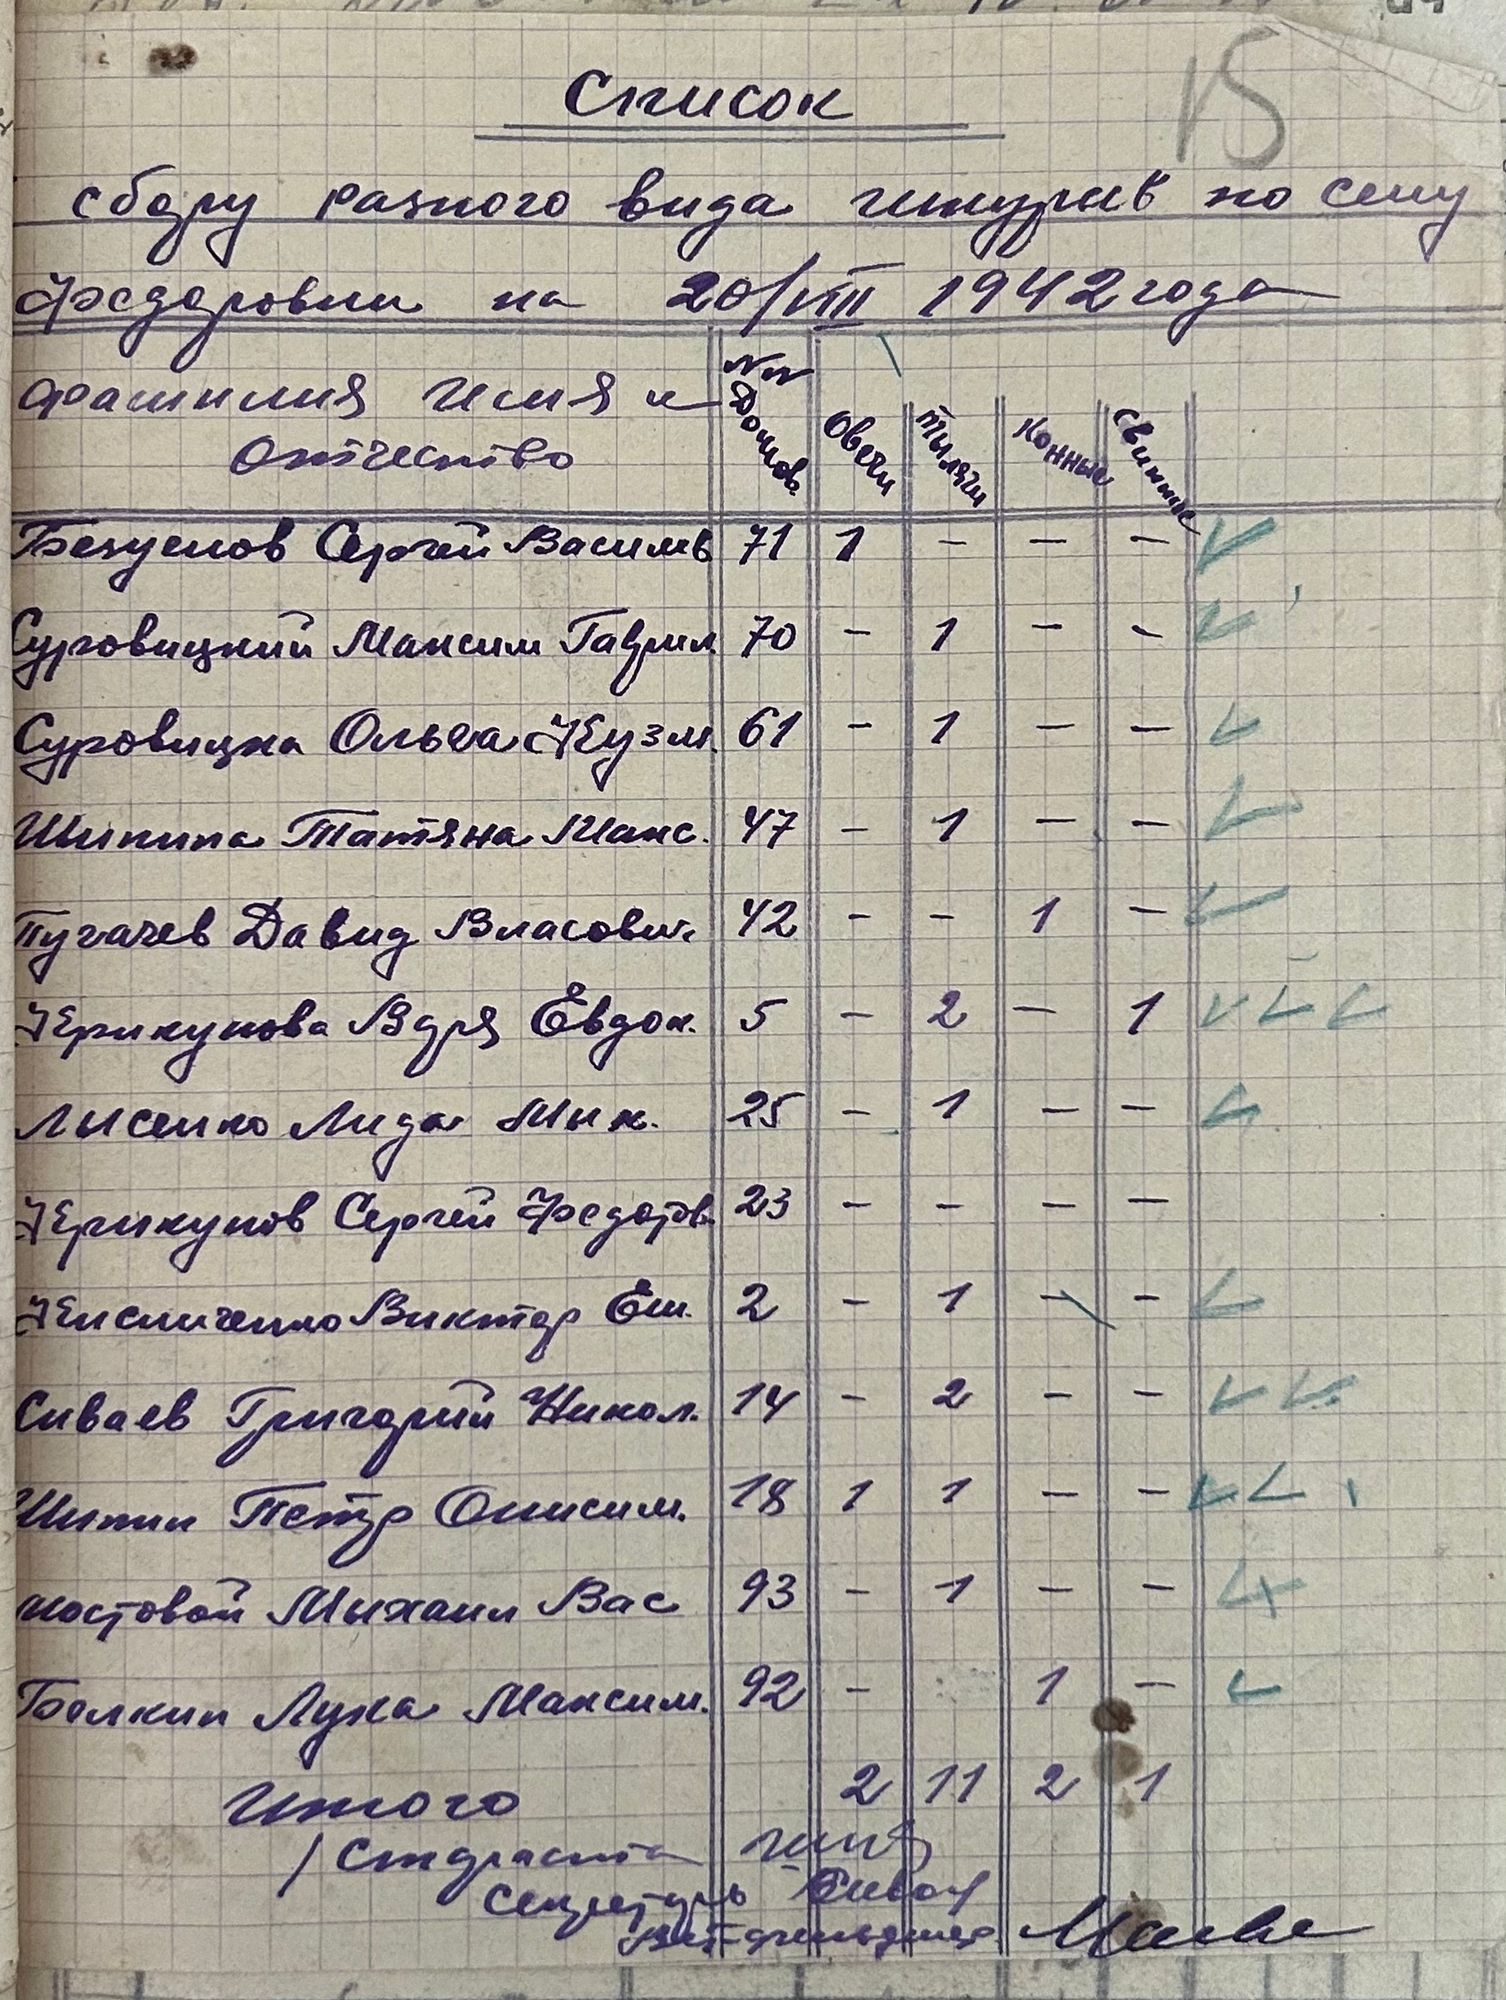 15
Список
сбору разного вида шкурив по селу
Федоровки на 20/VIII 1942 года
Фамилия Имя и Отчество №№ Домов. Овечи Тыляги Конные Свиные
Безуглов Сергей Василь 71 1 - - -
Суровицкий Максим Гаврил. 70 - 1 - -
Суровицка Ольга Кузм. 61 - 1 - -
Шипина Татяна Макс. 47 - 1 - -
Пугачев Давид Власович. 42 - - 1 -
Керикунова Вдря Евдок. 5 - 2 - 1
Лысенко Лида Мык. 25 - 1 - -
Керикунов Сергей Федотов. 23 - - - -
Кисличенко Виктор Ем. 2 - 1 - -
Сиваев Григорий Никол. 14 - 2 - -
Шипин Петр Онисим. 18 1 1 - -
мостовой Мыхаил Вас 93 - 1 - -
Белкин Лука Максим. 92 - 1 -
Итого 2 11 2 1
/ Старости
Секретарь
Ветфельдшер